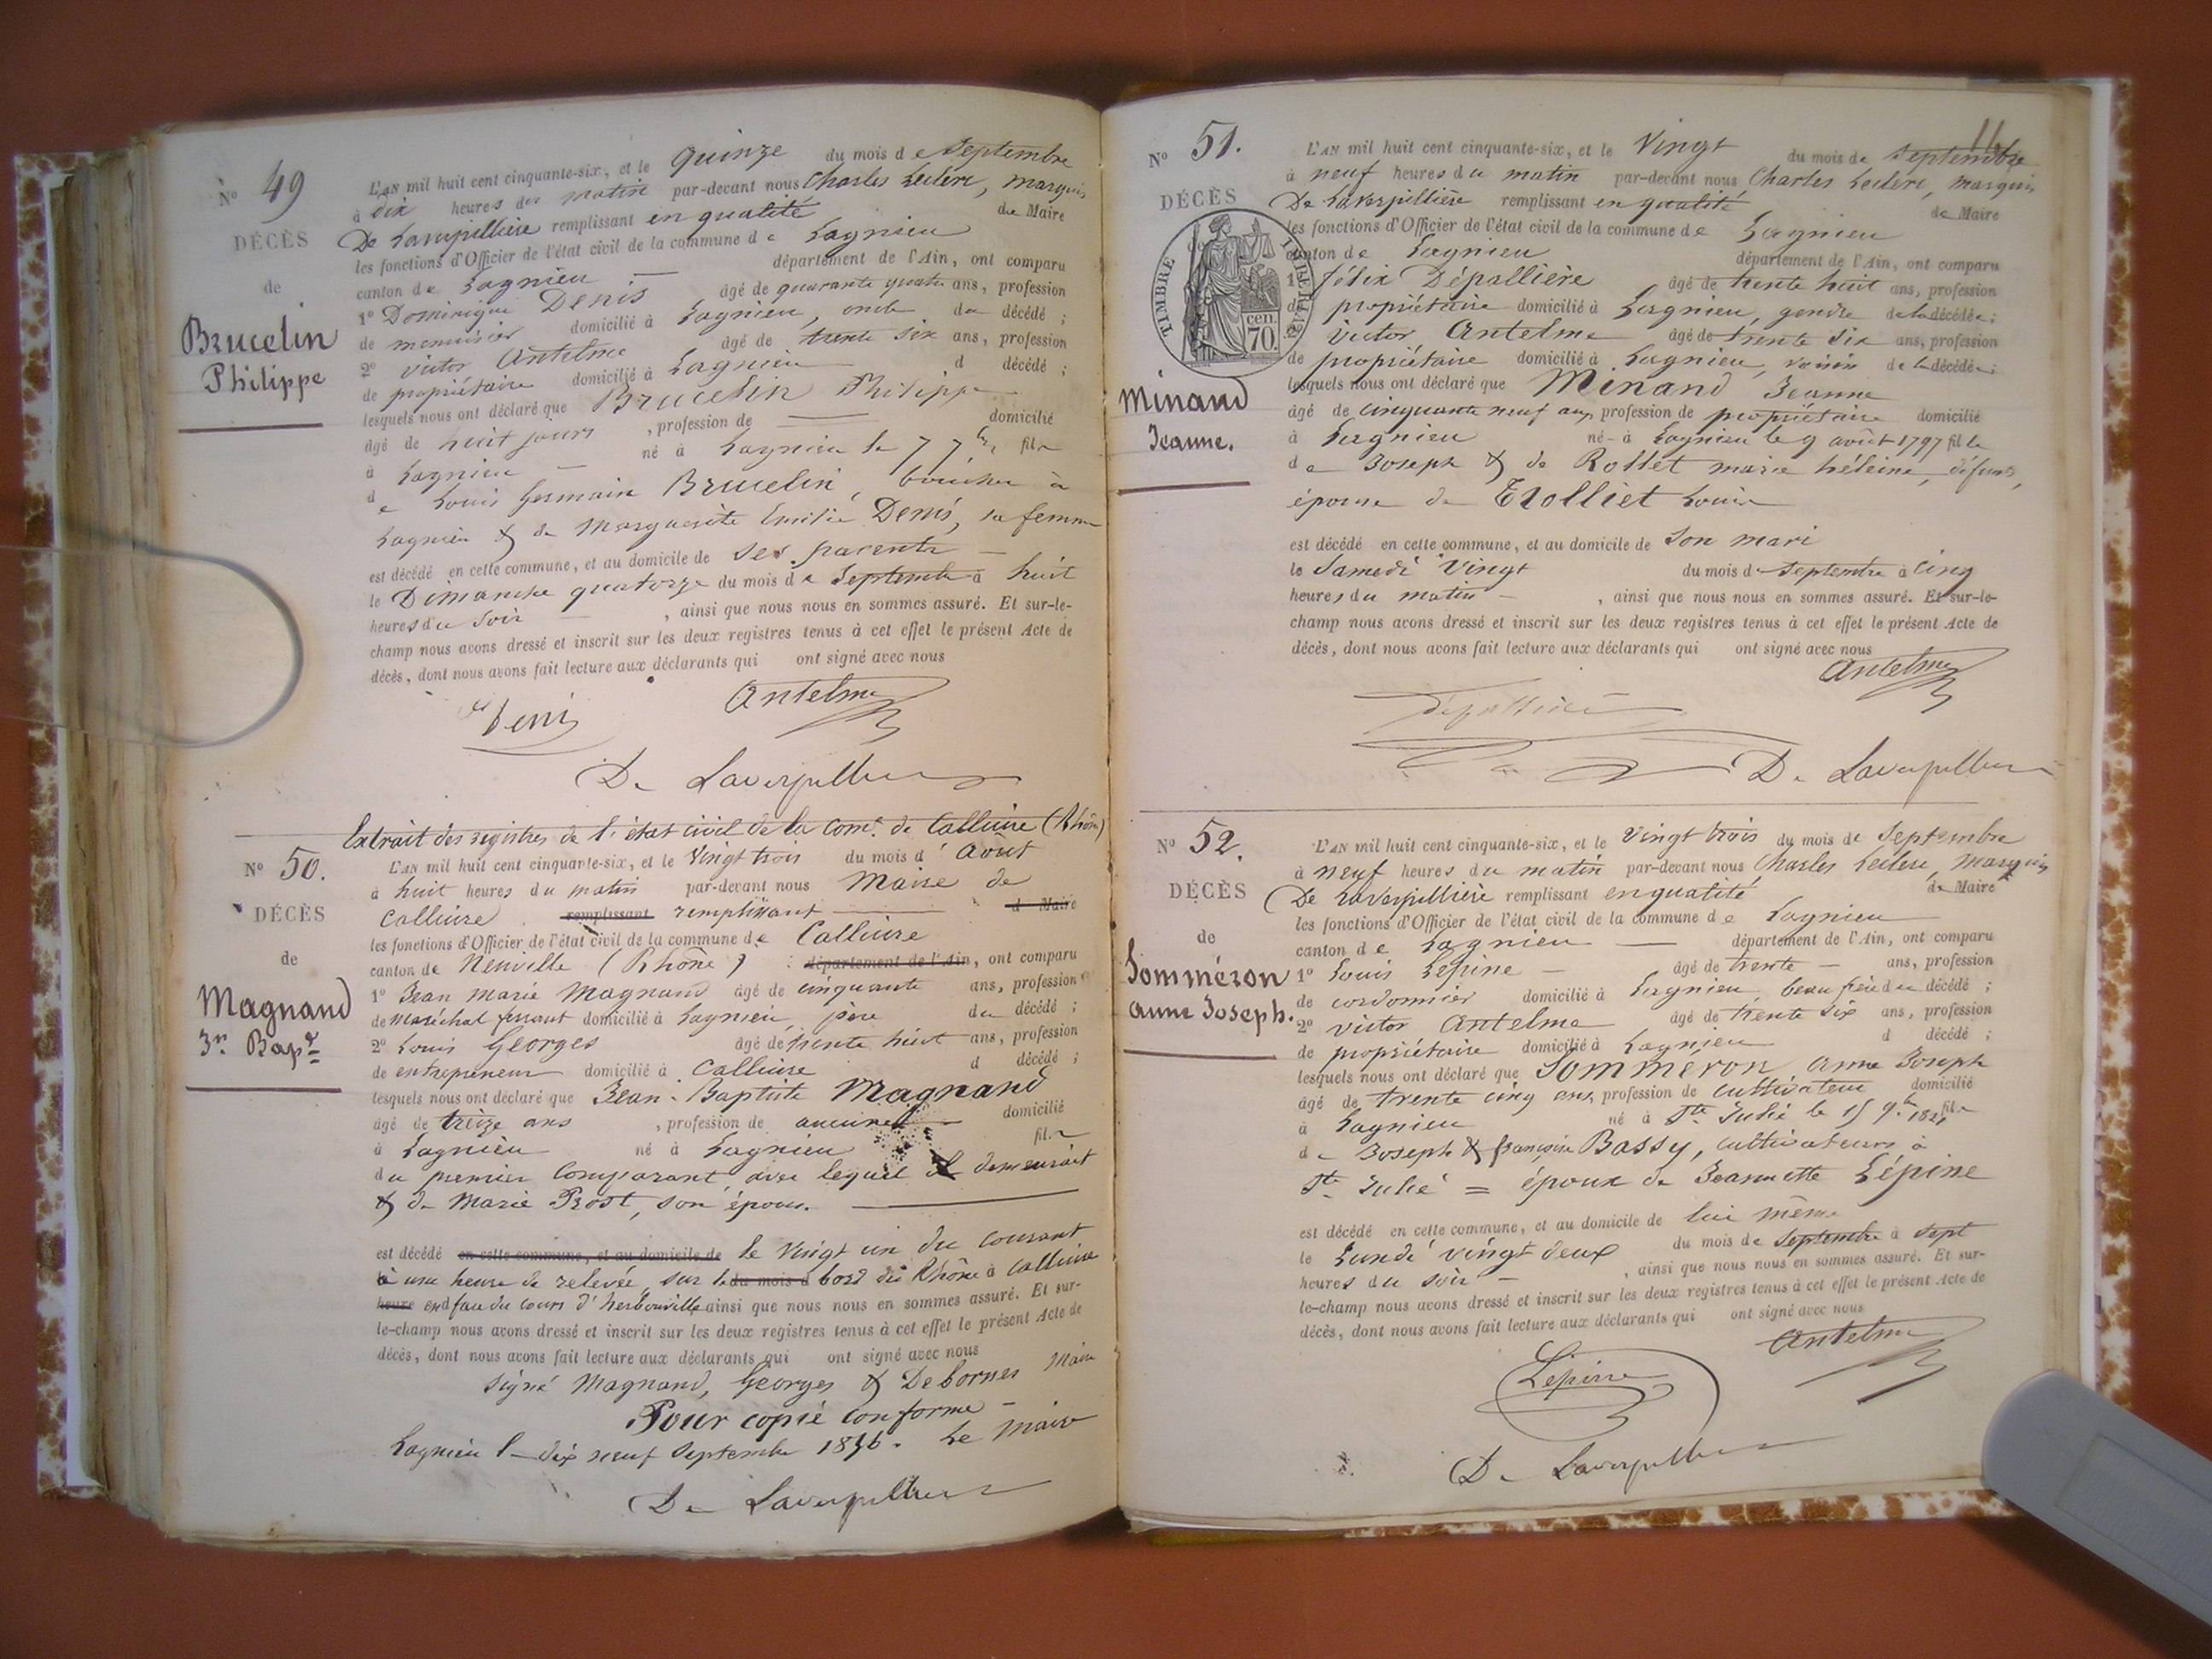 N° 49
DÉCÈS
de
Brucelin
Philippe
L'AN mil huit cent cinquante-six, et le quinze du mois de Septembre
à dix heures du matin par-devant nous Charles Leclerc, marquis
De Laverpillière remplissant en qualité de Maire
les fonctions d'Officier de l'état civil de la commune de Lagnieu
canton de Lagnieu — département de l'Ain, ont comparu
1° Dominique Denis âgé de quarante quatre ans, profession
de menuisier domicilié à Lagnieu, oncle du décédé ;
2° victor Antelme âgé de trente six ans, profession
de propriétaire domicilié à Lagnieu d décédé ;
lesquels nous ont déclaré que Brucelin Philippe
âgé de huit jours , profession de — domicilié
à Lagnieu — né à Lagnieu le 7 7bre, fils
de Louis Germain Brucelin, boucher à
Lagnieu & de Marguerite Emilie Denis, sa femme
est décédé en cette commune, et au domicile de ses parents —
le Dimanche quatorze du mois de Septembre à huit
heures du soir — , ainsi que nous nous en sommes assuré. Et sur-le-
champ nous avons dressé et inscrit sur les deux registres tenus à cet effet le présent Acte de
décès, dont nous avons fait lecture aux déclarants qui ont signé avec nous
Denis Antelme
De Laverpillière
Extrait des registres de l'état civil de la Come. de Calluire (Rhône)
N° 50.
DÉCÈS
de
Magnand
Jn. Bapte
L'AN mil huit cent cinquante-six, et le Vingt trois du mois d'Août
à huit heures du matin par-devant nous Maire de
Calluire remplissant remplissant — d Maire
les fonctions d'Officier de l'état civil de la commune de Calluire
canton de Neuville (Rhône) département de l'Ain, ont comparu
1° Jean Marie Magnand âgé de cinquante ans, profession
de Maréchal ferrant domicilié à Lagnieu, père du décédé ;
2° Louis Georges âgé de trente huit ans, profession
de entrepreneur domicilié à Calluire d décédé ;
lesquels nous ont déclaré que Jean-Baptiste Magnand
âgé de treize ans , profession de aucune domicilié
à Lagnieu né à Lagnieu fils
du premier Comparant avec lequel il demeurait
& de Marie Prost, son épouse. —
est décédé en cette commune, et au domicile de le Vingt un du courant
à une heure de relevée, sur le du mois d bord du Rhône à Calluire
heure en face du cours d'herbouville ainsi que nous nous en sommes assuré. Et sur-
le-champ nous avons dressé et inscrit sur les deux registres tenus à cet effet le présent Acte de
décès, dont nous avons fait lecture aux déclarants qui ont signé avec nous
Signé Magnand, Georges & Debornes Maire
Pour copie conforme —
Lagnieu le dix neuf Septembre 1856. Le Maire
De Laverpillière
N° 51.
DÉCÈS
TIMBRE IMPERIAL
cen.
70.
Minand
Jeanne.
L'AN mil huit cent cinquante-six, et le Vingt du mois de Septembre
à neuf heures du matin par-devant nous Charles Leclerc, marquis
De Laverpillière remplissant en qualité de Maire
les fonctions d'Officier de l'état civil de la commune de Lagnieu
canton de Lagnieu département de l'Ain, ont comparu
1° félix Dépallière âgé de trente huit ans, profession
de propriétaire domicilié à Lagnieu, gendre de la décédée ;
2° Victor Antelme âgé de trente six ans, profession
de propriétaire domicilié à Lagnieu, voisin de la décédée ;
lesquels nous ont déclaré que Minand Jeanne
âgé de cinquante neuf ans, profession de propriétaire domicilié
à Lagnieu né à Lagnieu le 9 août 1797 fille
de Joseph & de Rollet marie héleine, défunts,
épouse de Trolliet Louis
est décédé en cette commune, et au domicile de Son mari
le Samedi Vingt du mois de Septembre à Cinq
heures du matin — , ainsi que nous nous en sommes assuré. Et sur-le-
champ nous avons dressé et inscrit sur les deux registres tenus à cet effet le présent Acte de
décès, dont nous avons fait lecture aux déclarants qui ont signé avec nous
Antelme
Dépallière
De Laverpillière
N° 52.
DÉCÈS
de
Somméron
Anne Joseph.
L'AN mil huit cent cinquante-six, et le Vingt trois du mois de Septembre
à neuf heures du matin par-devant nous Charles Leclerc, Marquis
De Laverpillière remplissant en qualité de Maire
les fonctions d'Officier de l'état civil de la commune de Lagnieu
canton de Lagnieu — département de l'Ain, ont comparu
1° Louis Lepine — âgé de trente — ans, profession
de cordonnier domicilié à Lagnieu, beau frère du décédé ;
2° victor Antelme âgé de trente six ans, profession
de propriétaire domicilié à Lagnieu d décédé ;
lesquels nous ont déclaré que Sommeron Anne Joseph
âgé de trente cinq ans, profession de cultivateur domicilié
à Lagnieu né à Ste. Julie le 15 9bre 1821 fils
de Joseph & françoise Bassy, cultivateurs à
Ste. Julie = époux de Jeannette Lépine
est décédé en cette commune, et au domicile de lui même
le Lundi vingt deux du mois de Septembre à sept
heures du soir — , ainsi que nous nous en sommes assuré. Et sur-
le-champ nous avons dressé et inscrit sur les deux registres tenus à cet effet le présent Acte de
décès, dont nous avons fait lecture aux déclarants qui ont signé avec nous
Lepine Antelme
De Laverpillière